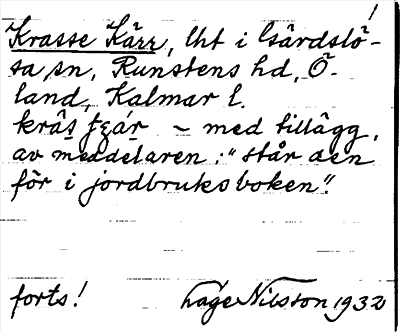 Krasse Kärr, lht i Gårdslö-
sa sn, Runstens hd, Ö-
land, Kalmar l.
krás ꞔár ~ med tillägg
av meddelaren: "står den
för i jordbruksboken".
forts! Tage Nilsson 1932